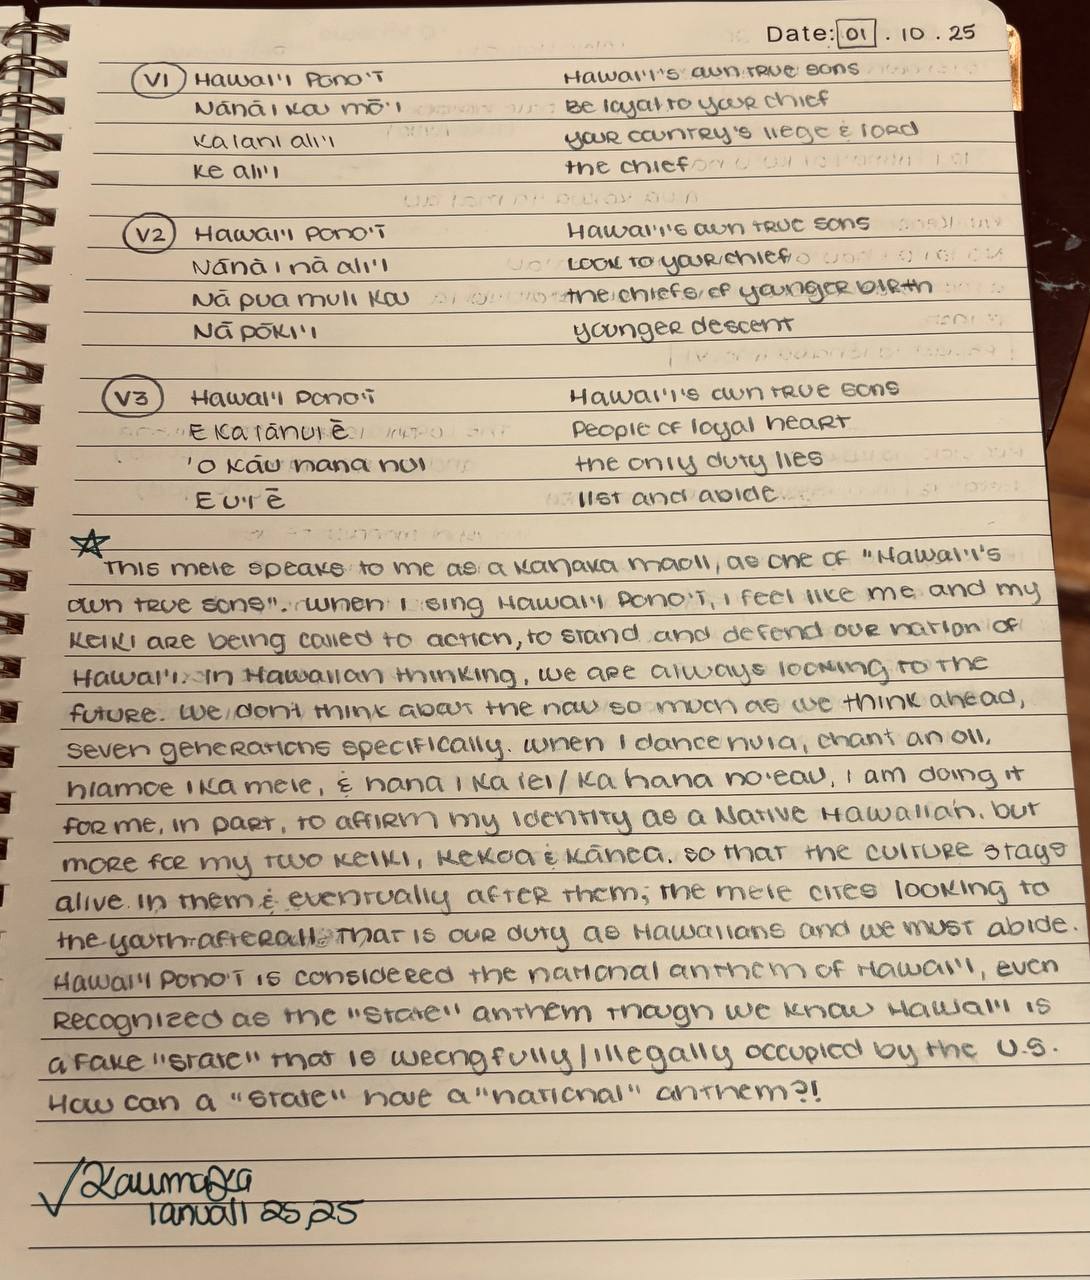 Date: 01 . 10 . 25
V1 Hawai'i Pono'ī Hawai'i's own true sons
Nānā i kou mō'i Be loyal to your chief
Kalani ali'i your country's liege & lord
Ke ali'i the chief
V2 Hawai'i Pono'ī Hawai'i's own true sons
Nānā i nā ali'i Look to your chief
Nā pua muli kou the chiefs of younger birth
Nā pōki'i younger descent
V3 Hawai'i Pono'ī Hawai'i's own true sons
E ka lāhui ē People of loyal heart
'O kāu hana nui the only duty lies
E ui ē list and abide
This mele speaks to me as a kanaka maoli, as one of "Hawai'i's
own true sons". When I sing Hawai'i Pono'ī, I feel like me and my
keiki are being called to action, to stand and defend our nation of
Hawai'i. In Hawaiian thinking, we are always looking to the
future. We don't think about the now so much as we think ahead,
seven generations specifically. When I dance hula, chant an oli,
hīamoe i ka mele, & hana i ka lei/ka hana no'eau, I am doing it
for me, in part, to affirm my identity as a Native Hawaiian. but
more for my two keiki, Kekoa & Kānea. so that the culture stays
alive in them & eventually after them; the mele cites looking to
the youth afterall. That is our duty as Hawaiians and we must abide.
Hawai'i Pono'ī is considered the national anthem of Hawai'i, even
recognized as the "state" anthem though we know Hawai'i is
a fake "state" that is wrongfully/illegally occupied by the U.S.
How can a "state" have a "national" anthem?!
√Kaumaka
Ianuali 25, 25